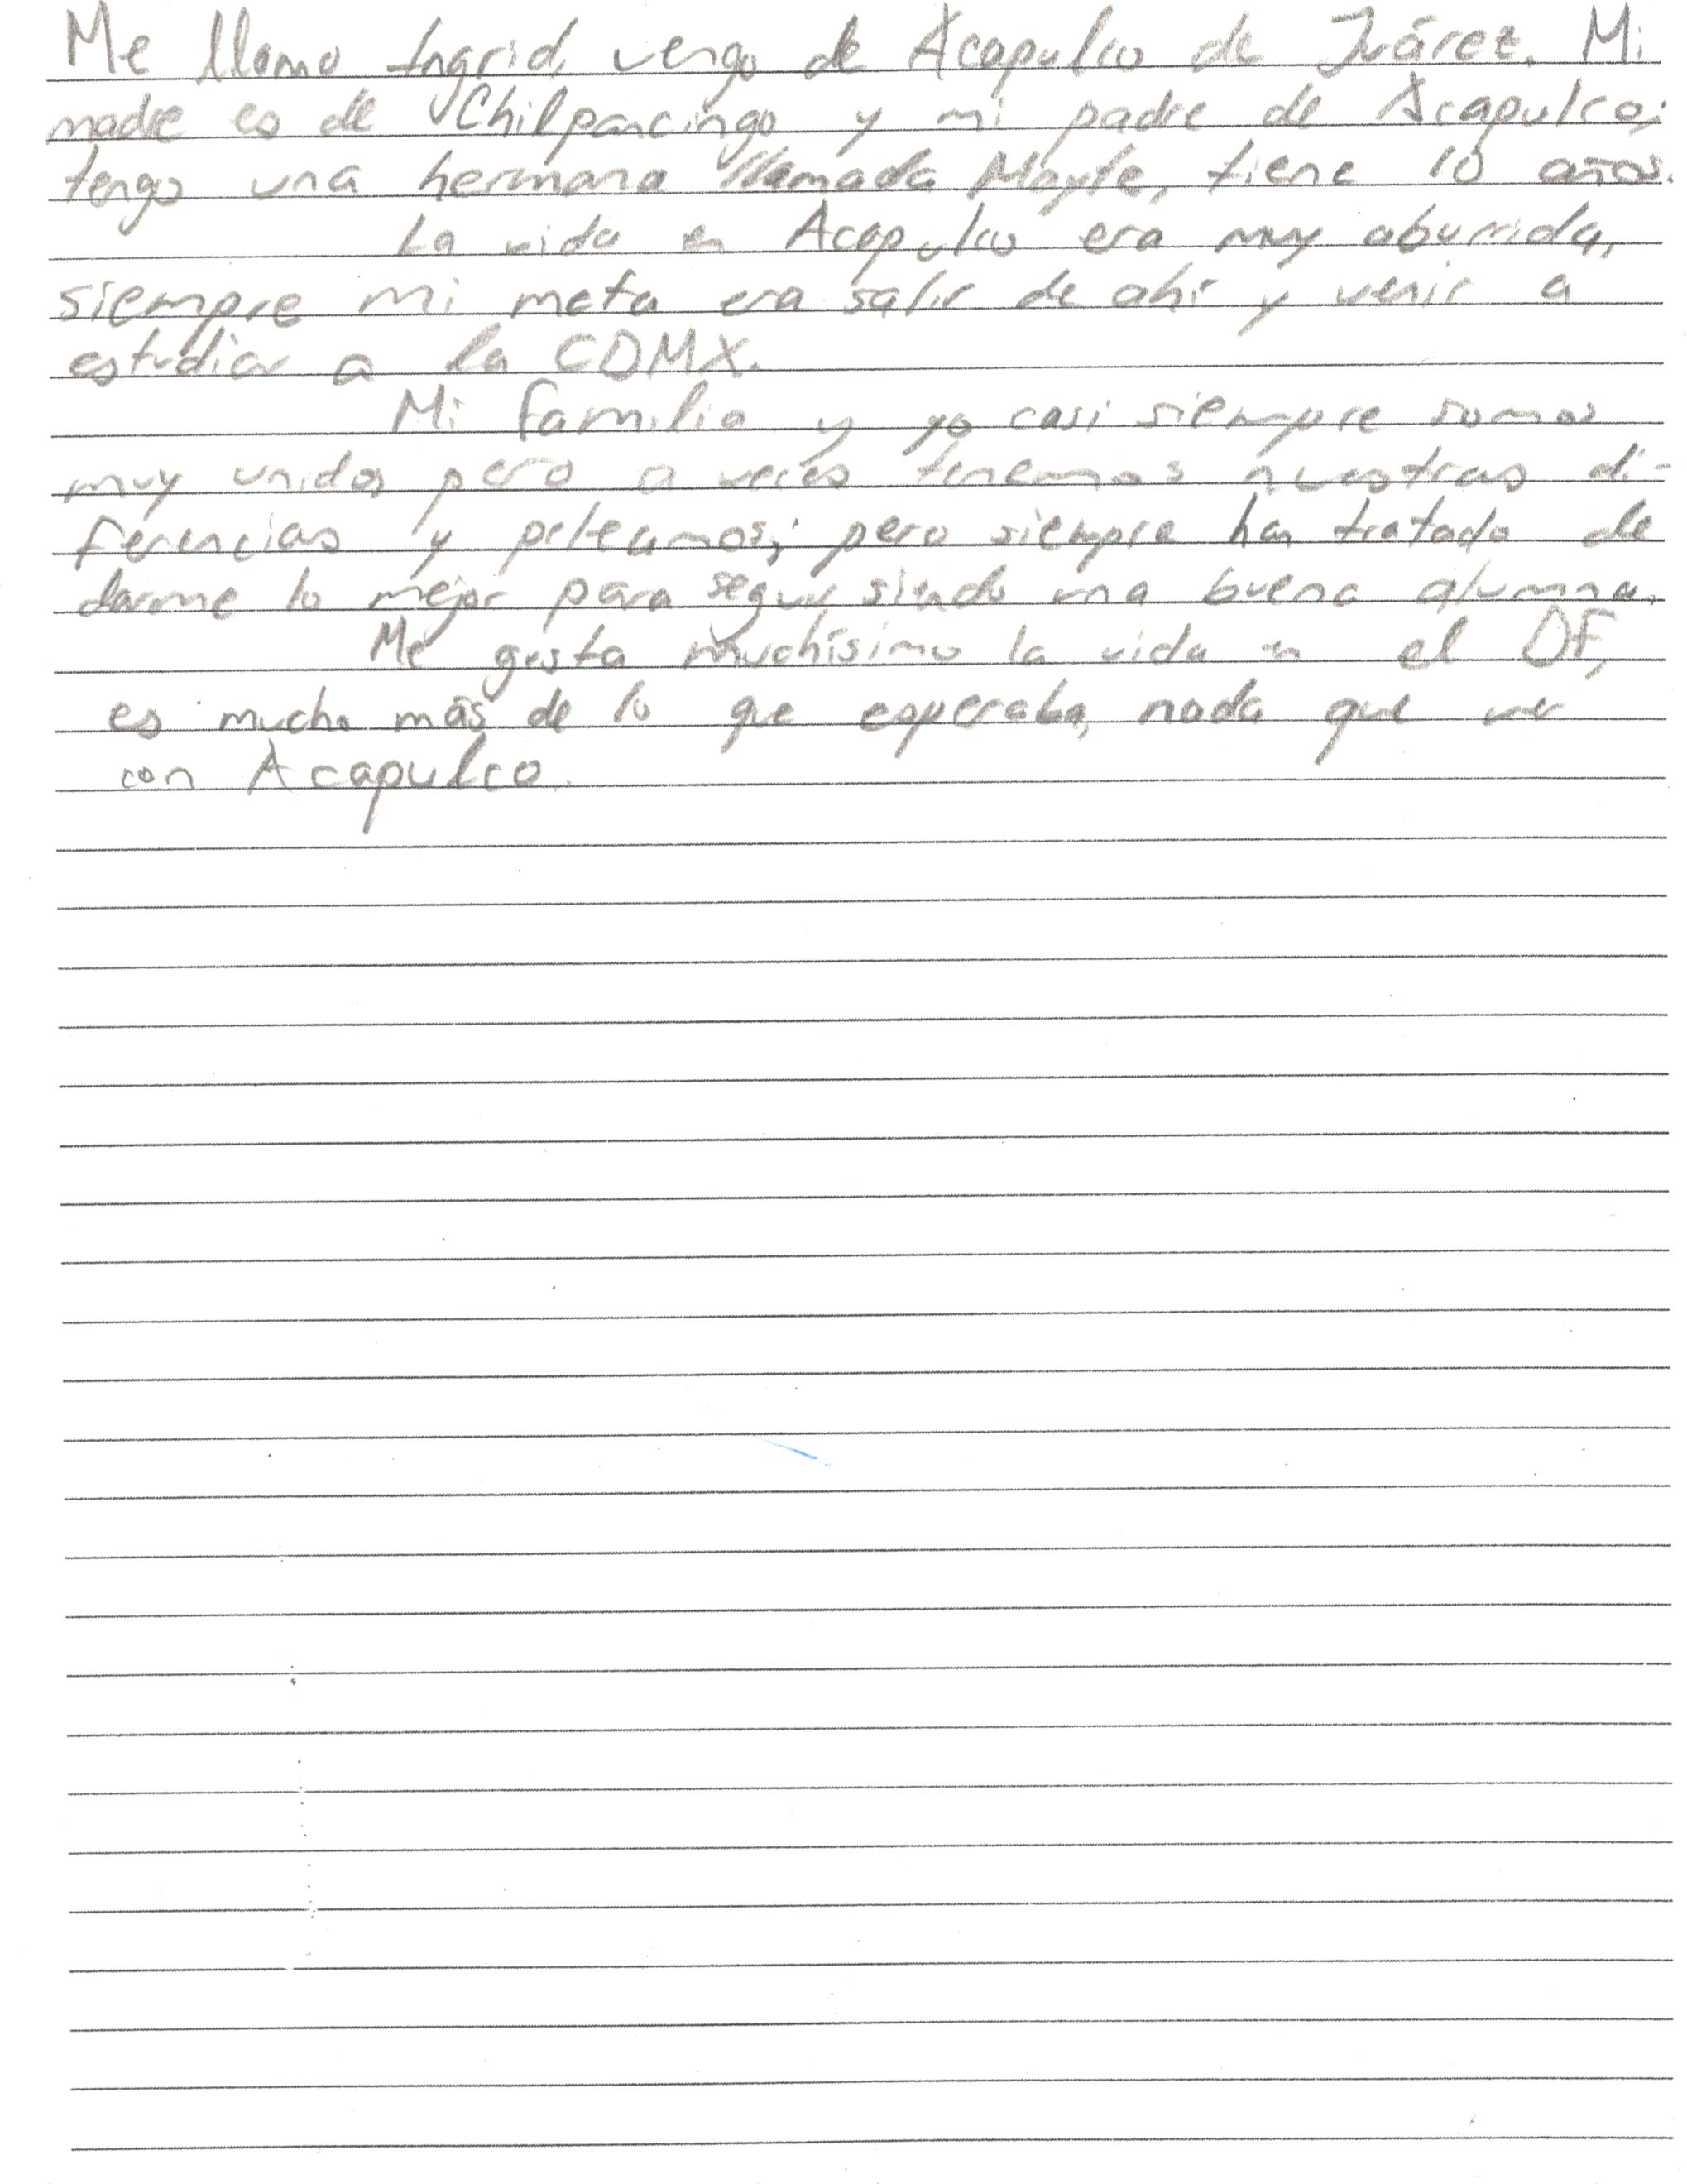 Me llamo Ingrid, vengo de Acapulco de Juárez. Mi
madre es de Chilpancingo y mi padre de Acapulco;
tengo una hermana llamada Mayte, tiene 10 años.
La vida en Acapulco era muy aburrida,
siempre mi meta era salir de ahí y venir a
estudiar a la CDMX.
Mi familia y yo casi siempre somos
muy unidos pero a veces tenemos nuestras di-
ferencias y peleamos; pero siempre han tratado de
darme lo mejor para seguir siendo una buena alumna.
Me gusta muchísimo la vida en el DF,
es mucho más de lo que esperaba, nada que ver
con Acapulco.